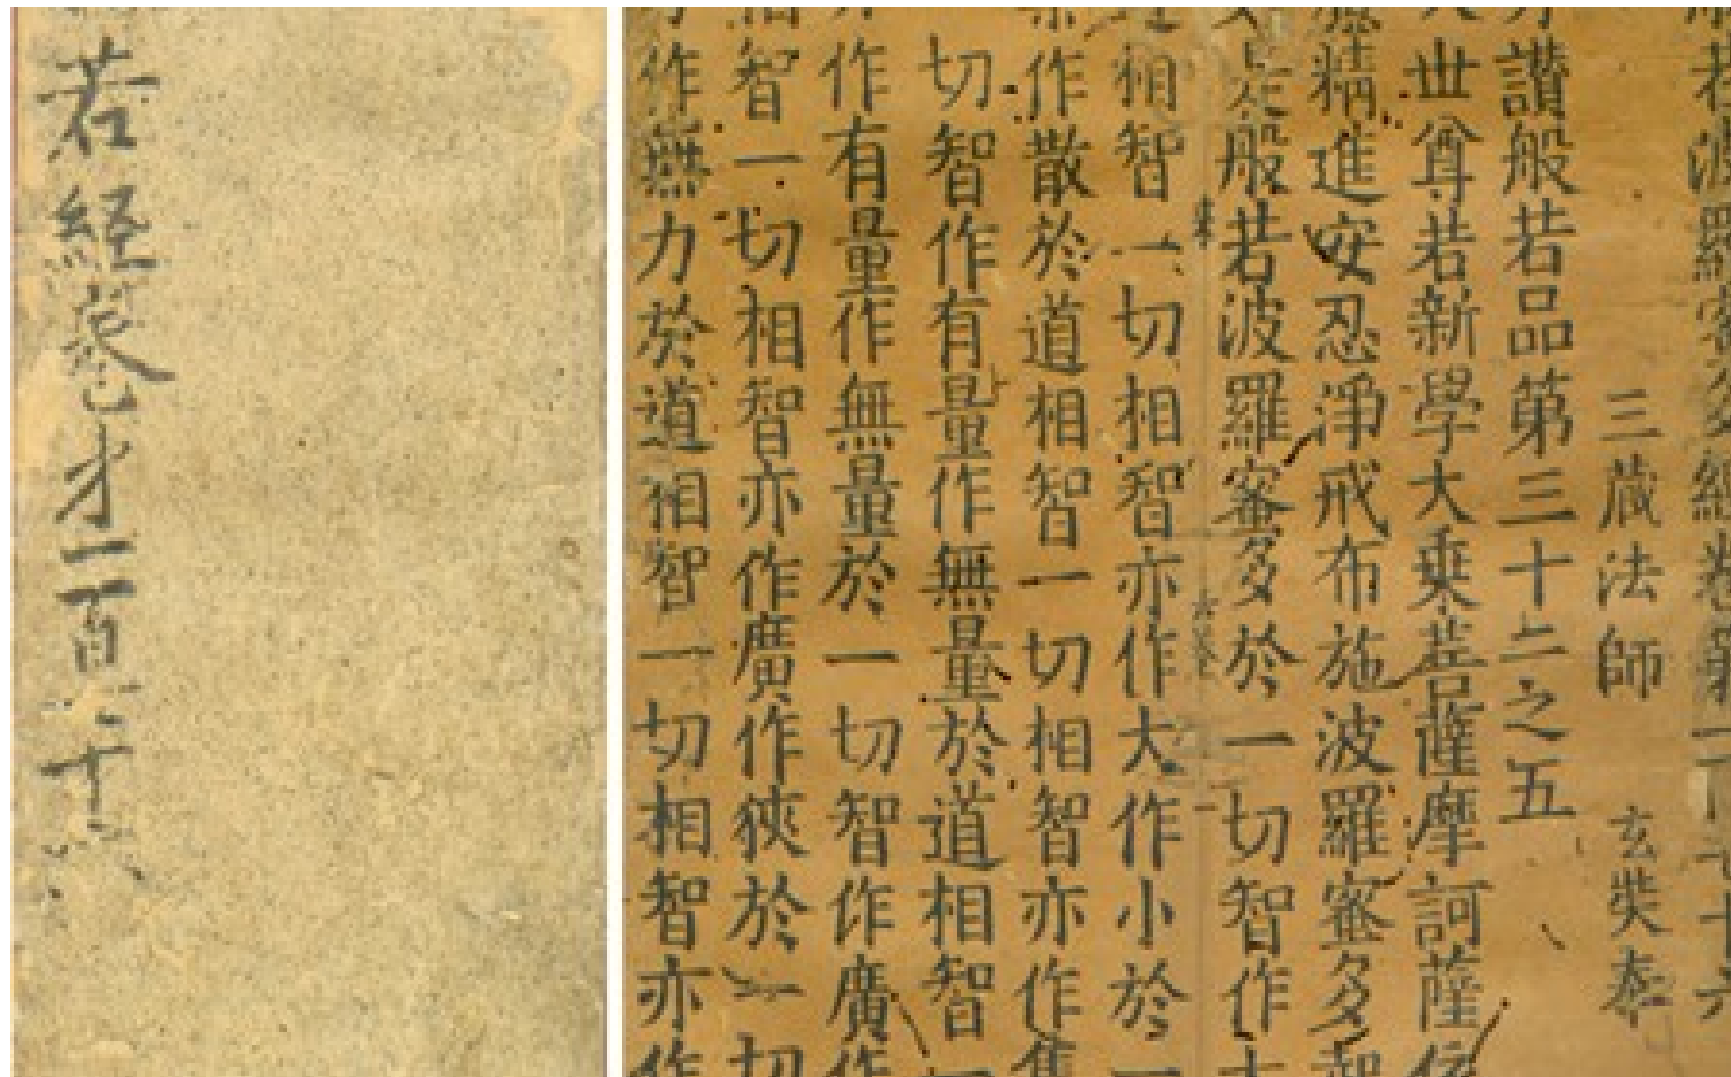 若経巻才一百七十六
若波羅蜜多經卷第一百七十六
三蔵法師 玄奘奉
讃般若品第三十二之五
世尊若新學大乗菩薩摩訶薩依
精進安忍淨戒布施波羅蜜多起
是般若波羅蜜多於一切智作大
相智一切相智亦作大作小於一
作散於道相智一切相智亦作集
切智作有量作無量於道相智一
作有量作無量於一切智作廣作
智一切相智亦作廣作狹於一切
作無力於道相智一切相智亦作